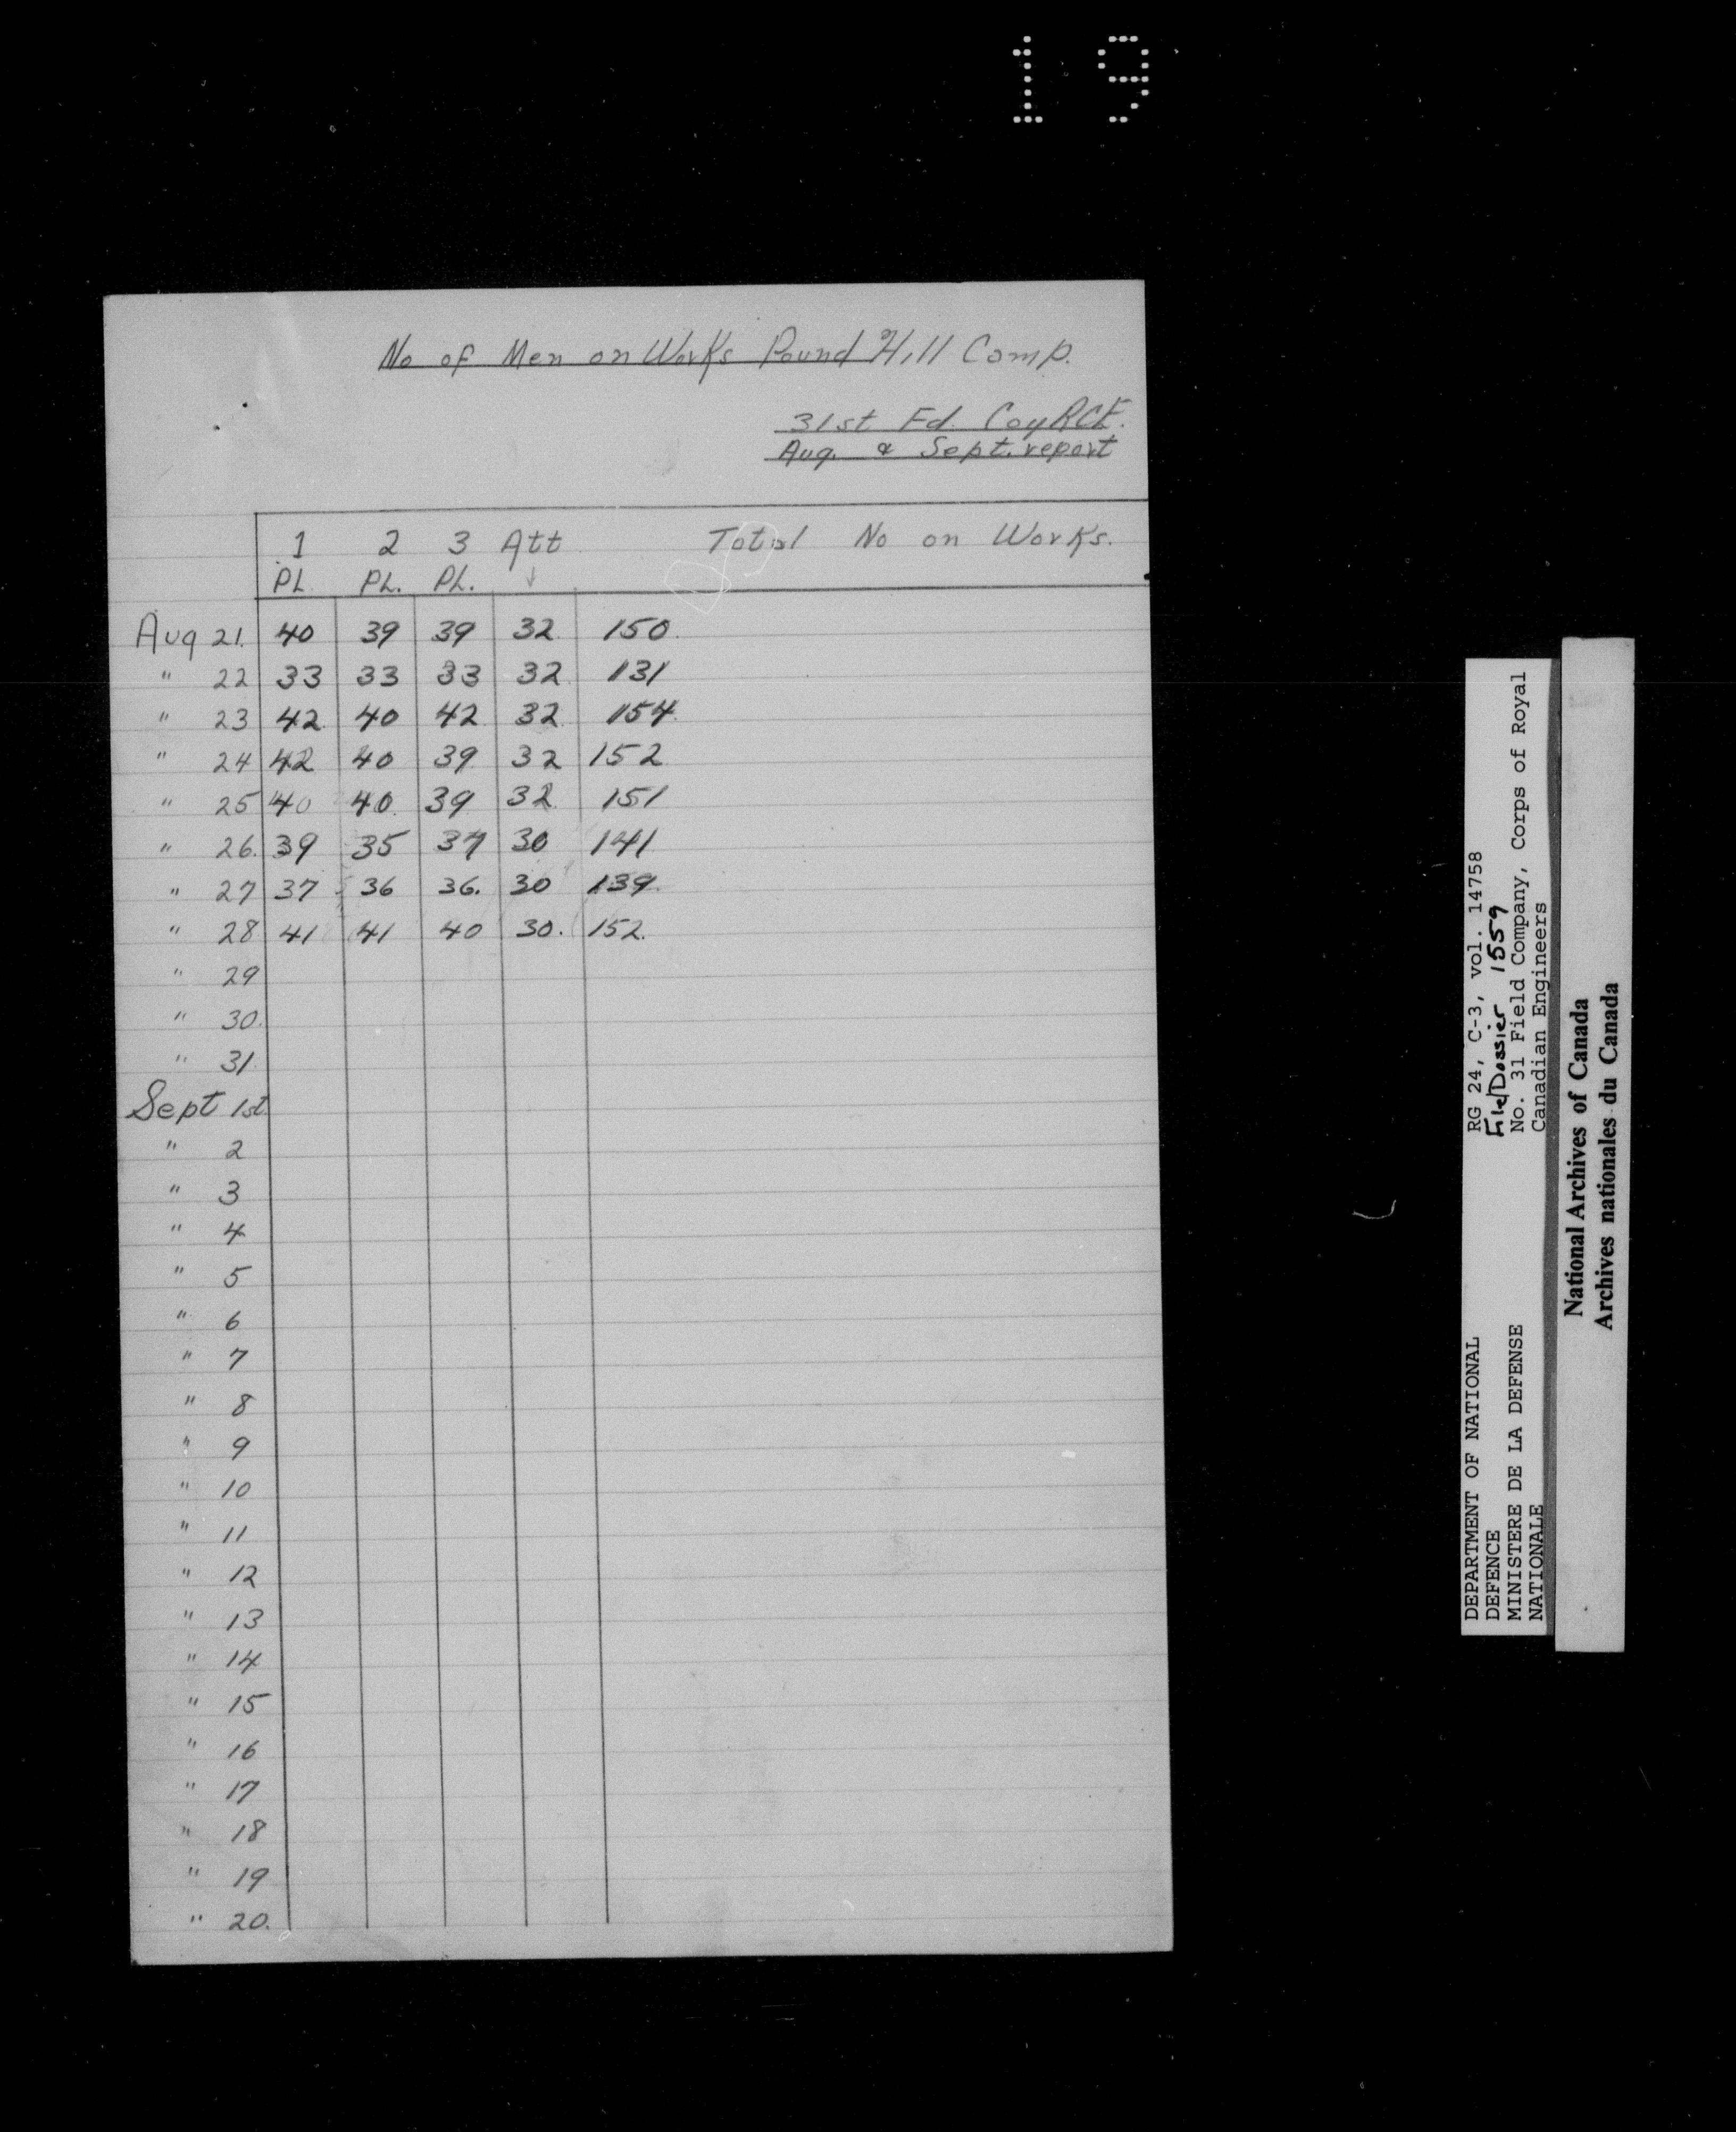 19
No of Men on Works Pound Hill Camp.
31st Fd. Coy RCE.
Aug. & Sept. report
1 2 3 Att Total No on Works.
PL PL. PL. ↓
Aug 21. 40 39 39 32 150.
" 22 33 33 33 32 131
" 23 42 40 42 32 154.
" 24 42 40 39 32 152
" 25 40 40 39 32 151
" 26. 39 35 37 30 141
" 27 37 36 36. 30 139.
" 28 41 41 40 30. 152.
" 29
" 30.
" 31.
Sept 1st.
" 2
" 3
" 4
" 5
" 6
" 7
" 8
" 9
" 10
" 11
" 12
" 13
" 14
" 15
" 16
" 17
" 18
" 19
" 20.
DEPARTMENT OF NATIONAL
DEFENCE
MINISTERE DE LA DEFENSE
NATIONALE
RG 24, C-3, vol. 14758
File/Dossier 1559
No. 31 Field Company, Corps of Royal
Canadian Engineers
National Archives of Canada
Archives nationales du Canada